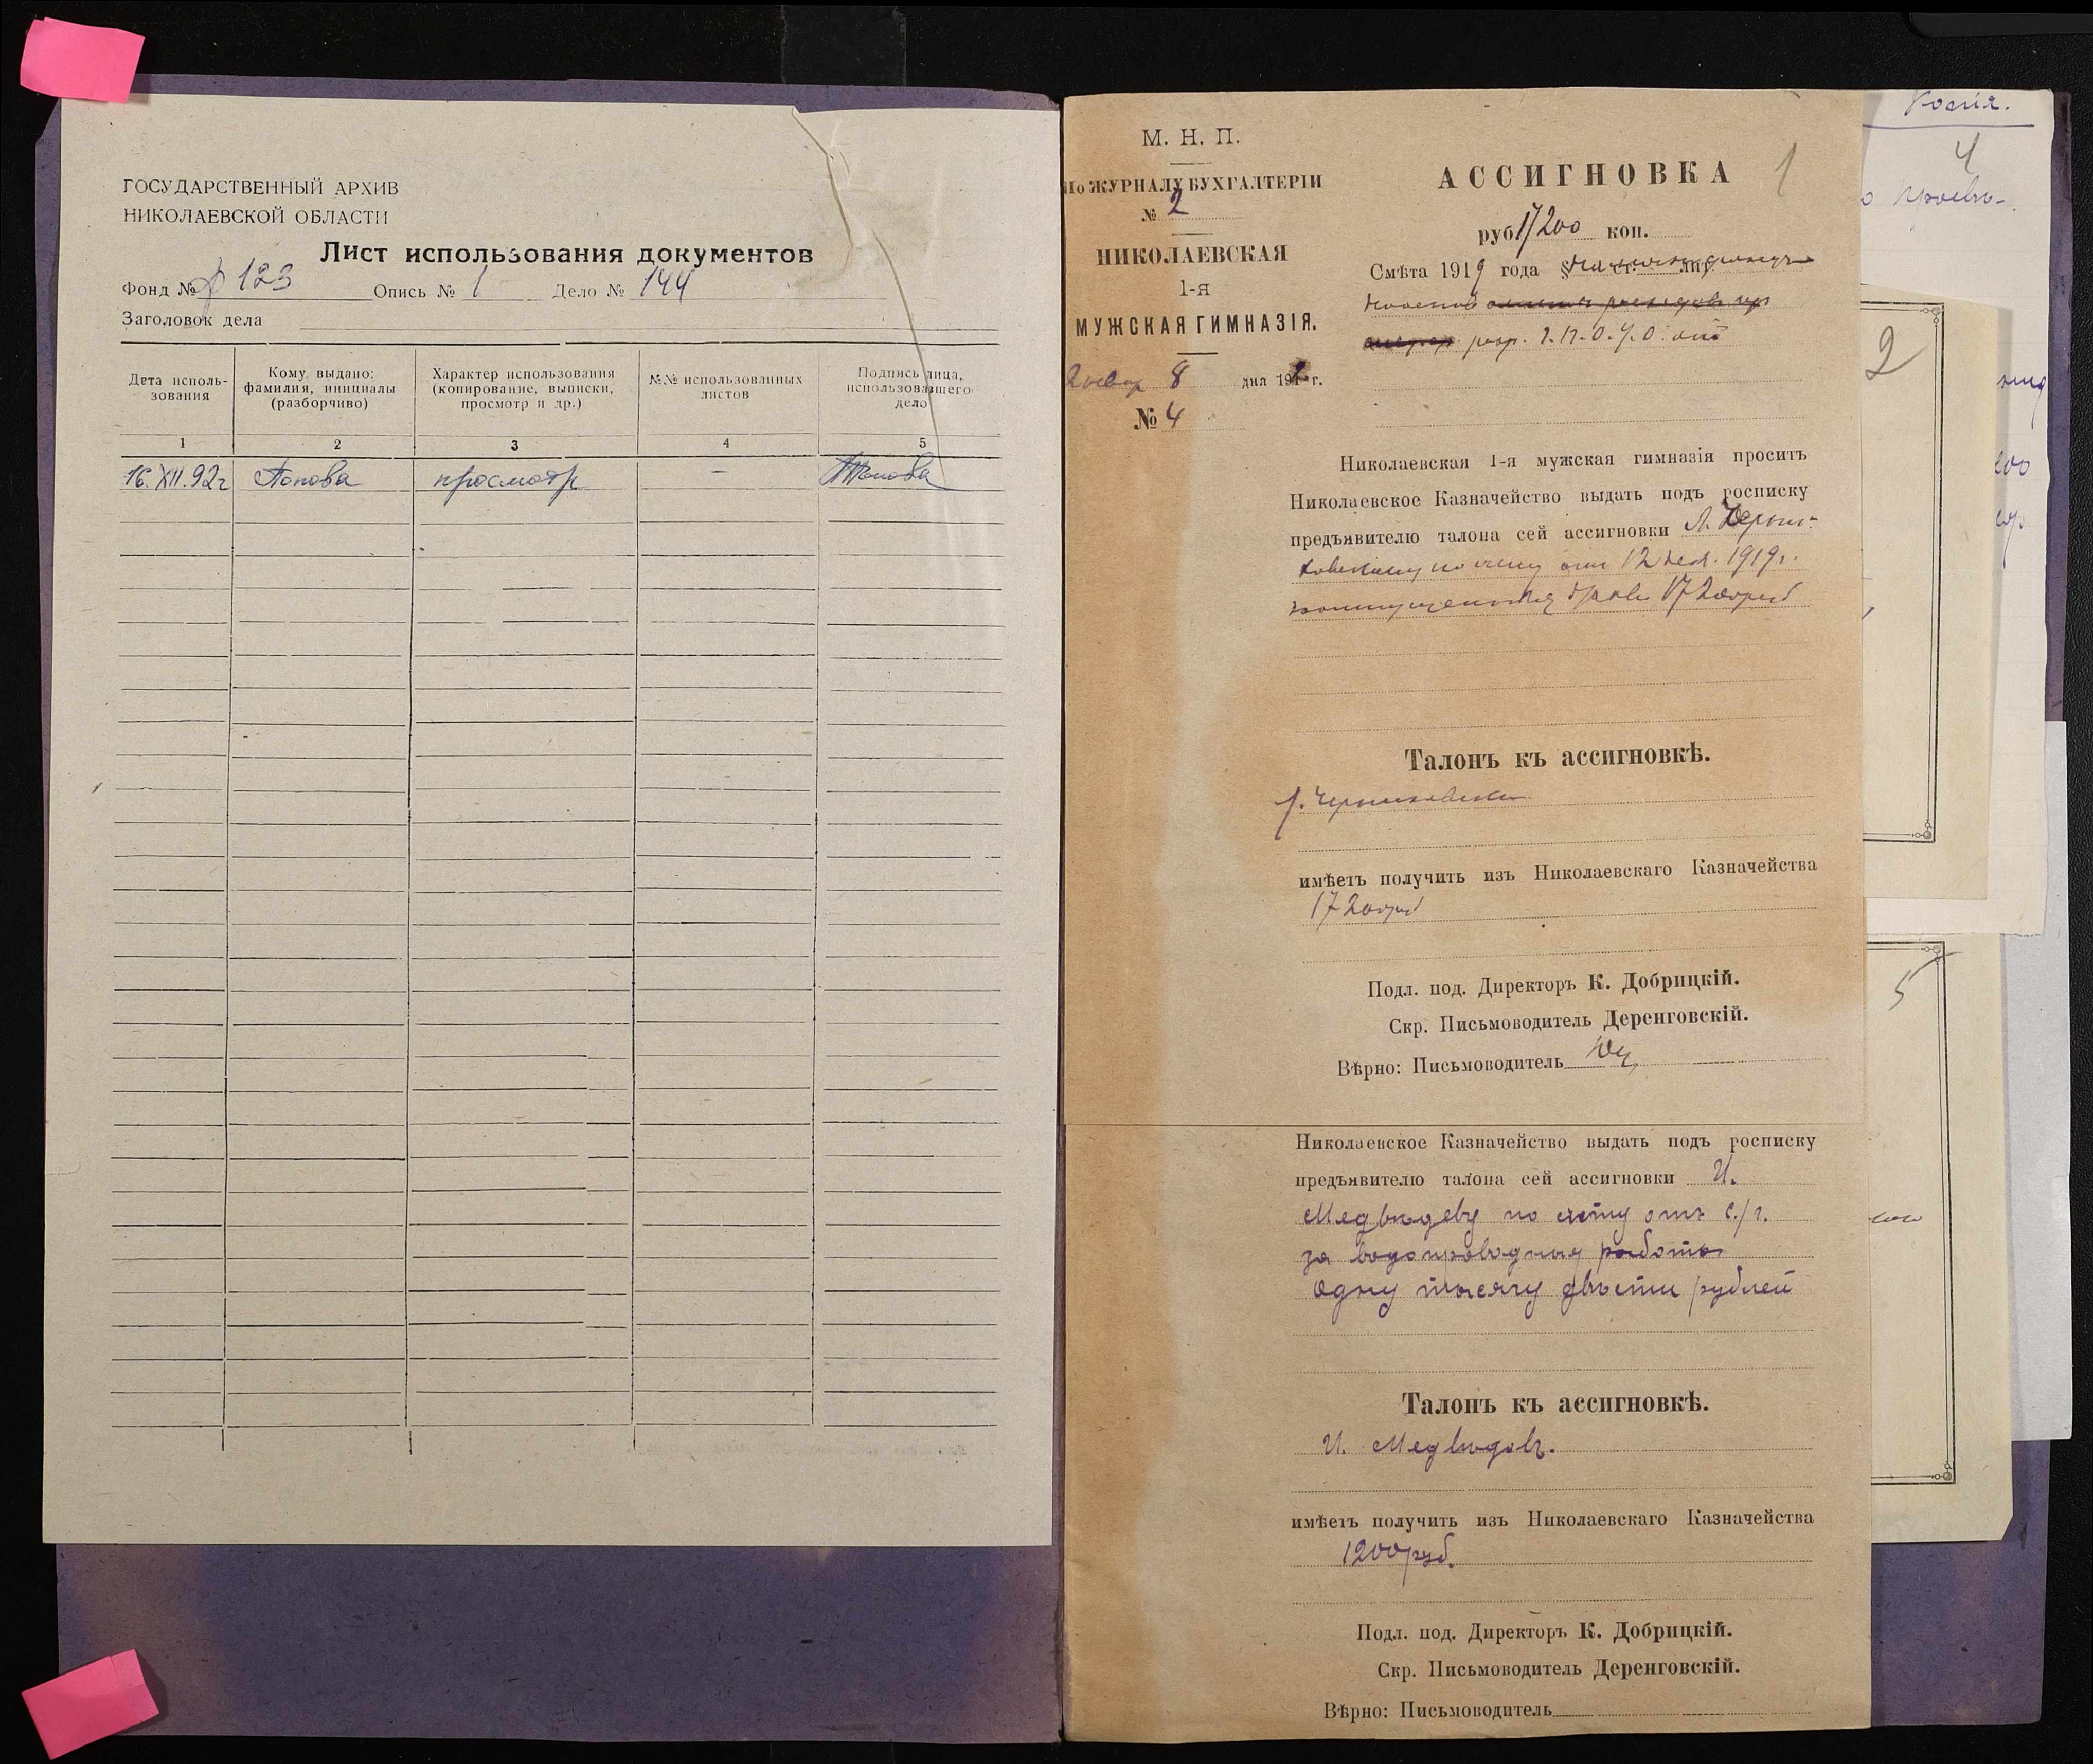 ГОСУДАРСТВЕННЫЙ АРХИВ
НИКОЛАЕВСКОЙ ОБЛАСТИ
Лист использования документов
Фонд № 123 Опись № 1 Дело № 144
Заголовок дела
Дата исполь-
зования
Кому выдано:
фамилия, инициалы
(разборчиво)
Характер использования
(копирование, выписки,
просмотр и др.)
№№ использованных
листов
Подпись лица,
использовавшего
дело
1 2 3 4 5
16.XII.92г Попова просмотр — Попова
М. Н. П.
По ЖУРНАЛУ БУХГАЛТЕРІИ
№ 2
НИКОЛАЕВСКАЯ
1-я
МУЖСКАЯ ГИМНАЗІЯ.
8 дня 191 г.
№ 4
АССИГНОВКА 1
руб 17200 коп.
Смѣта 1919 года § ст. лит.
Николаевская 1-я мужская гимназія проситъ
Николаевское Казначейство выдать подъ росписку
предъявителю талона сей ассигновки Л.
по счету отъ 12 1919г.
17200 руб
Талонъ къ ассигновкѣ.
имѣетъ получить изъ Николаевскаго Казначейства
17200 руб
Подл. под. Директоръ К. Добрицкій.
Скр. Письмоводитель Деренговскій.
Вѣрно: Письмоводитель
Николаевское Казначейство выдать подъ росписку
предъявителю талона сей ассигновки И.
Медвѣдеву по счету отъ с./г.
за водопроводныя работы
Одну тысячу двѣсти рублей
Талонъ къ ассигновкѣ.
И. Медвѣдевъ.
имѣетъ получить изъ Николаевскаго Казначейства
1200 руб.
Подл. под. Директоръ К. Добрицкій.
Скр. Письмоводитель Деренговскій.
Вѣрно: Письмоводитель
4
2
5